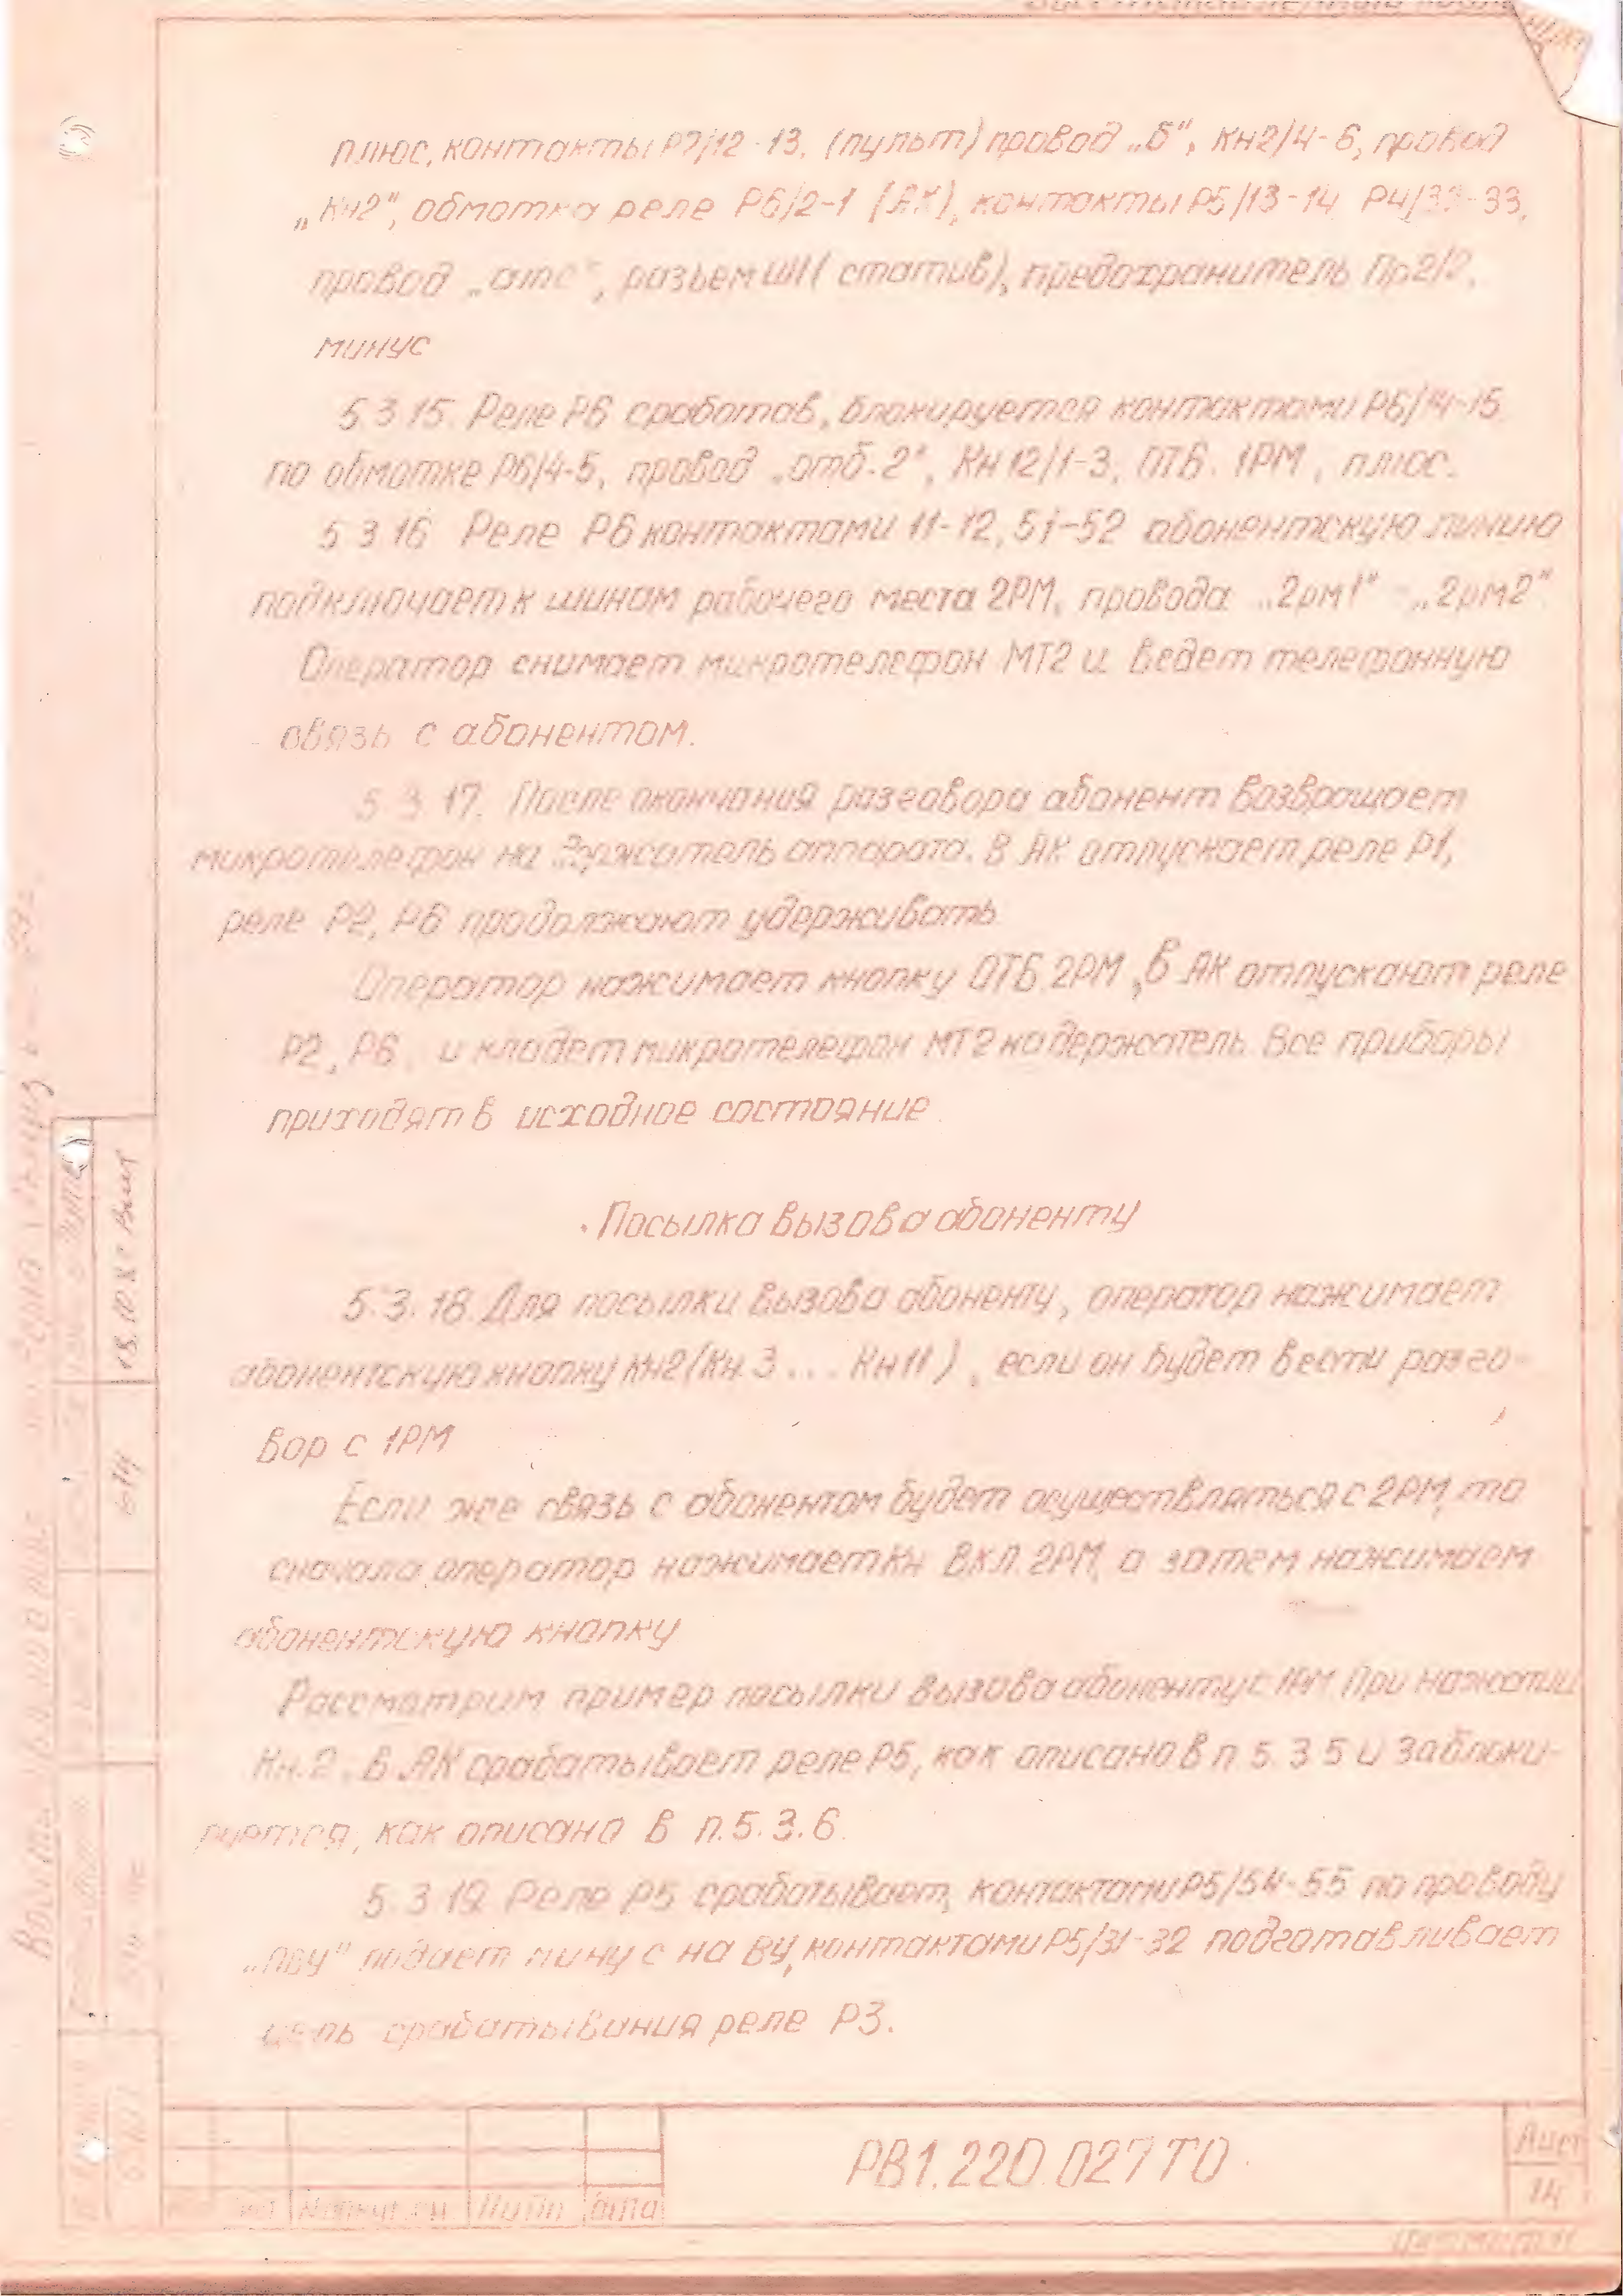 плюс, контакты Р7/12-13, (пульт) провод „б", Кн2/4-6, провод
„Кн2", обмотка реле Р6/2-1 (АК), контакты Р5/13-14 Р4/32-33,
провод „отс", разъем Ш1 (статив), предохранитель Пр2/2,
минус
5.3.15. Реле Р6 сработав, блокируется контактами Р6/14-15
по обмотке Р6/4-5, провод „отб.2", Кн12/1-3, ОТБ. 1РМ, плюс.
5.3.16 Реле Р6 контактами 11-12, 51-52 абонентскую линию
подключает к шинам рабочего места 2РМ, провода „2рм1" - „2рм2"
Оператор снимает микротелефон МТ2 и ведет телефонную
связь с абонентом.
5.3.17. После окончания разговора абонент возвращает
микротелефон на держатель аппарата. В АК отпускает реле Р1,
реле Р2, Р6 продолжают удерживать
Оператор нажимает кнопку ОТБ.2РМ, в АК отпускают реле
Р2, Р6, и кладет микротелефон МТ2 на держатель. Все приборы
приходят в исходное состояние.
Посылка вызова абоненту
5.3.18. Для посылки вызова абоненту, оператор нажимает
абонентскую кнопку Кн2 (Кн.3... Кн11), если он будет вести разго-
вор с 1РМ
Если же связь с абонентом будет осуществляться с 2РМ, то
сначала оператор нажимает Кн ВКЛ. 2РМ, а затем нажимаем
абонентскую кнопку
Рассмотрим пример посылки вызова абоненту с 1РМ При нажатии
Кн.2, в АК срабатывает реле Р5, как описано в п 5.3.5 и заблоки-
руется, как описано в п.5.3.6.
5.3.19. Реле Р5 срабатывает, контактами Р5/54-55 по проводу
„ПВУ" подает минус на ВУ, контактами Р5/31-32 подготавливает
цепь срабатывания реле Р3.
РВ1.220.027 ТО
Лист
14
Лист № докум Подп Дата
614